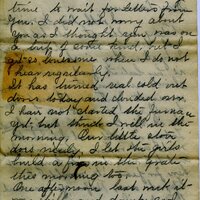 time to wait for letters from
you. I did not worry about
you as I thought you was on
a trip of some kind, but I
get so lonesome when I do not
hear regularly.
It has turned real cold out
doors today and clouded over.
I have not started the furnace
yet, but think I will in the
morning. Our little stove
does nicely. I let the girls
build a fire in the grate
this morning too.
One afternoon last week it